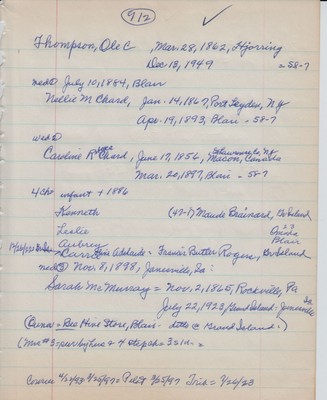 912
Thompson, Ole C , Mar. 28, 1862, Hjorring
Dec 13, 1949 = 58-7
med① July 10, 1884, Blair
Nellie M Chard, Jan. 14, 1867, Port Leyden, N.Y
Apr. 19, 1893, Blair - 58-7
wed②
Caroline R Chard, June 17, 1856, Macon, Canada
Mar. 20, 1897, Blair - 58-7
4 Ch infant + 1886
Kenneth (47-1) Maude Brainard,
Leslie 23 Omaha
Aubrey Blair
Adelaide = Francis Butler Rogers, Gr Island
med③ Nov. 8, 1898, Janesville, Ia:
Sarah McMurray = Nov. 2, 1865, Rockville, Pa
July 22, 1923, Grand Island - Janesville Ia
(Owner = Bee Hive Store, Blair - little @ Grand Island.)
(Mrs #3 = her by hus + 4 stepch = 3 sis. =